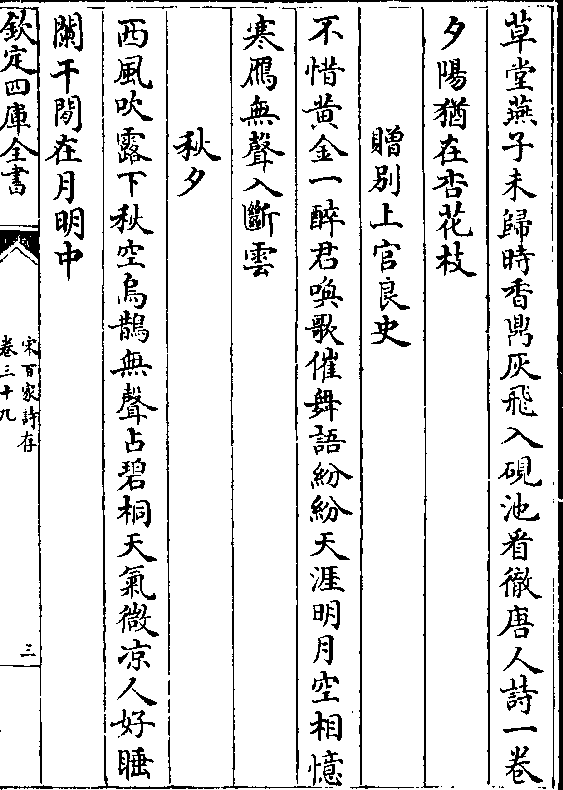 草堂燕子未歸時香鼎灰飛入硯池看徹唐人詩一卷
夕陽猶在杏花枝
贈别上官良史
不惜黄金一醉君喚歌催舞語紛紛天涯明月空相憶
寒鴈無聲入斷雲
秋夕
西風吹露下秋空烏鵲無聲占碧桐天氣微凉人好睡
闌干閒在月明中
欽定四庫全書
宋百家詩存
卷三十九
三